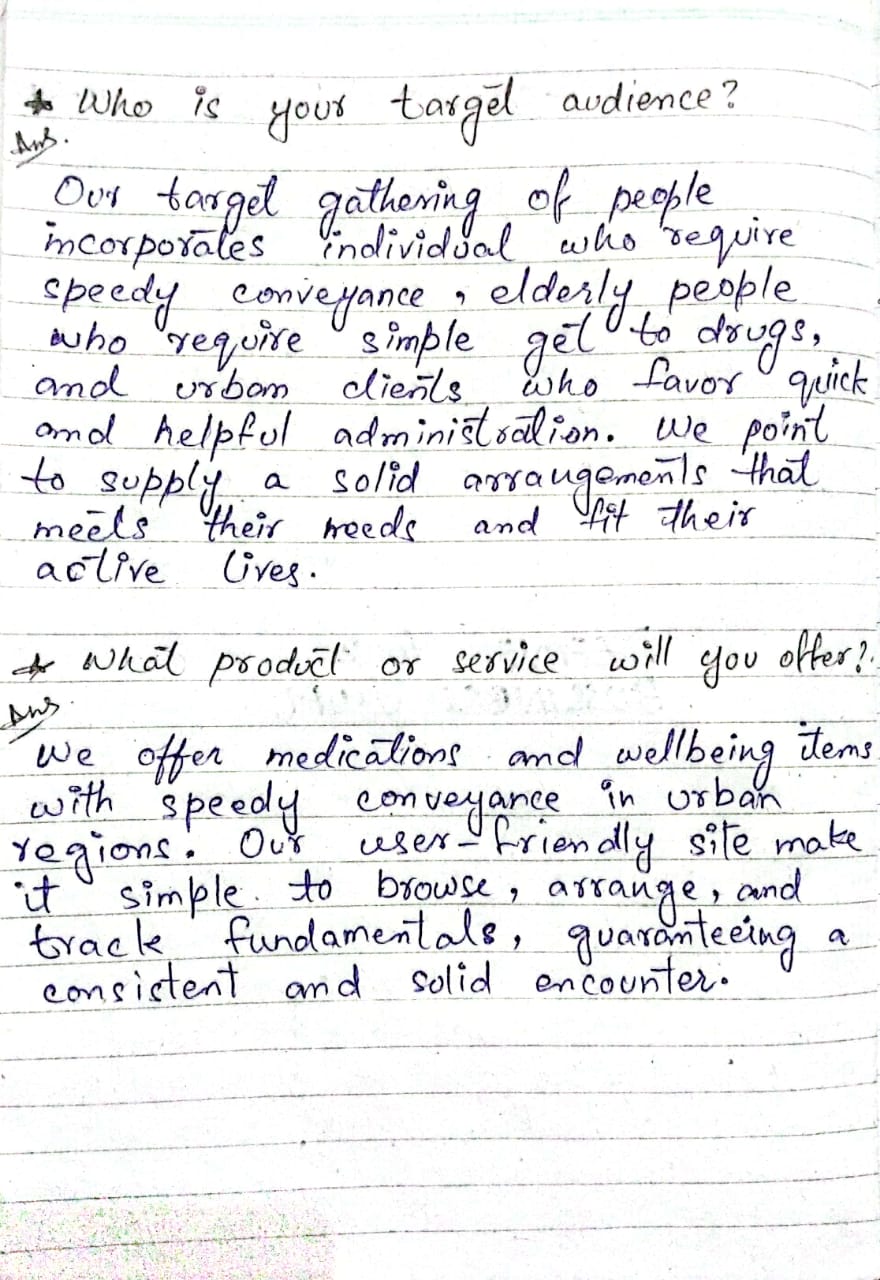 * Who is your target audience?
Ans.
Our target gathering of people
incorporates individual who require
speedy conveyance, elderly people
who require simple get to drugs,
and urban clients who favor quick
and helpful administration. We point
to supply a solid arrangements that
meets their needs and fit their
active lives.
* What product or service will you offer?
Ans
We offer medications and wellbeing items
with speedy conveyance in urban
regions. Our user-friendly site make
it simple to browse, arrange, and
track fundamentals, guaranteeing a
consistent and solid encounter.